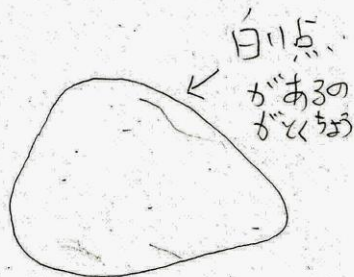 白い点
があるの
がとくちょう